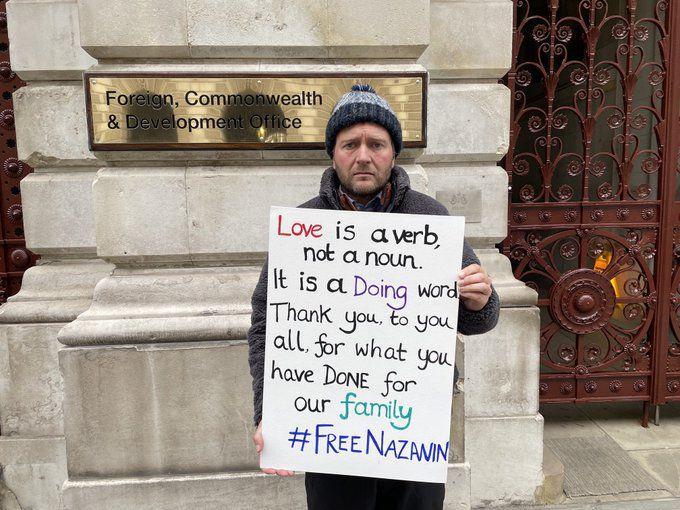 Foreign, Commonwealth
& Development Office
Love is a verb,
not a noun.
It is a Doing word
Thank you, to you
all, for what you
have DONE for
our family
#FREENAZANIN